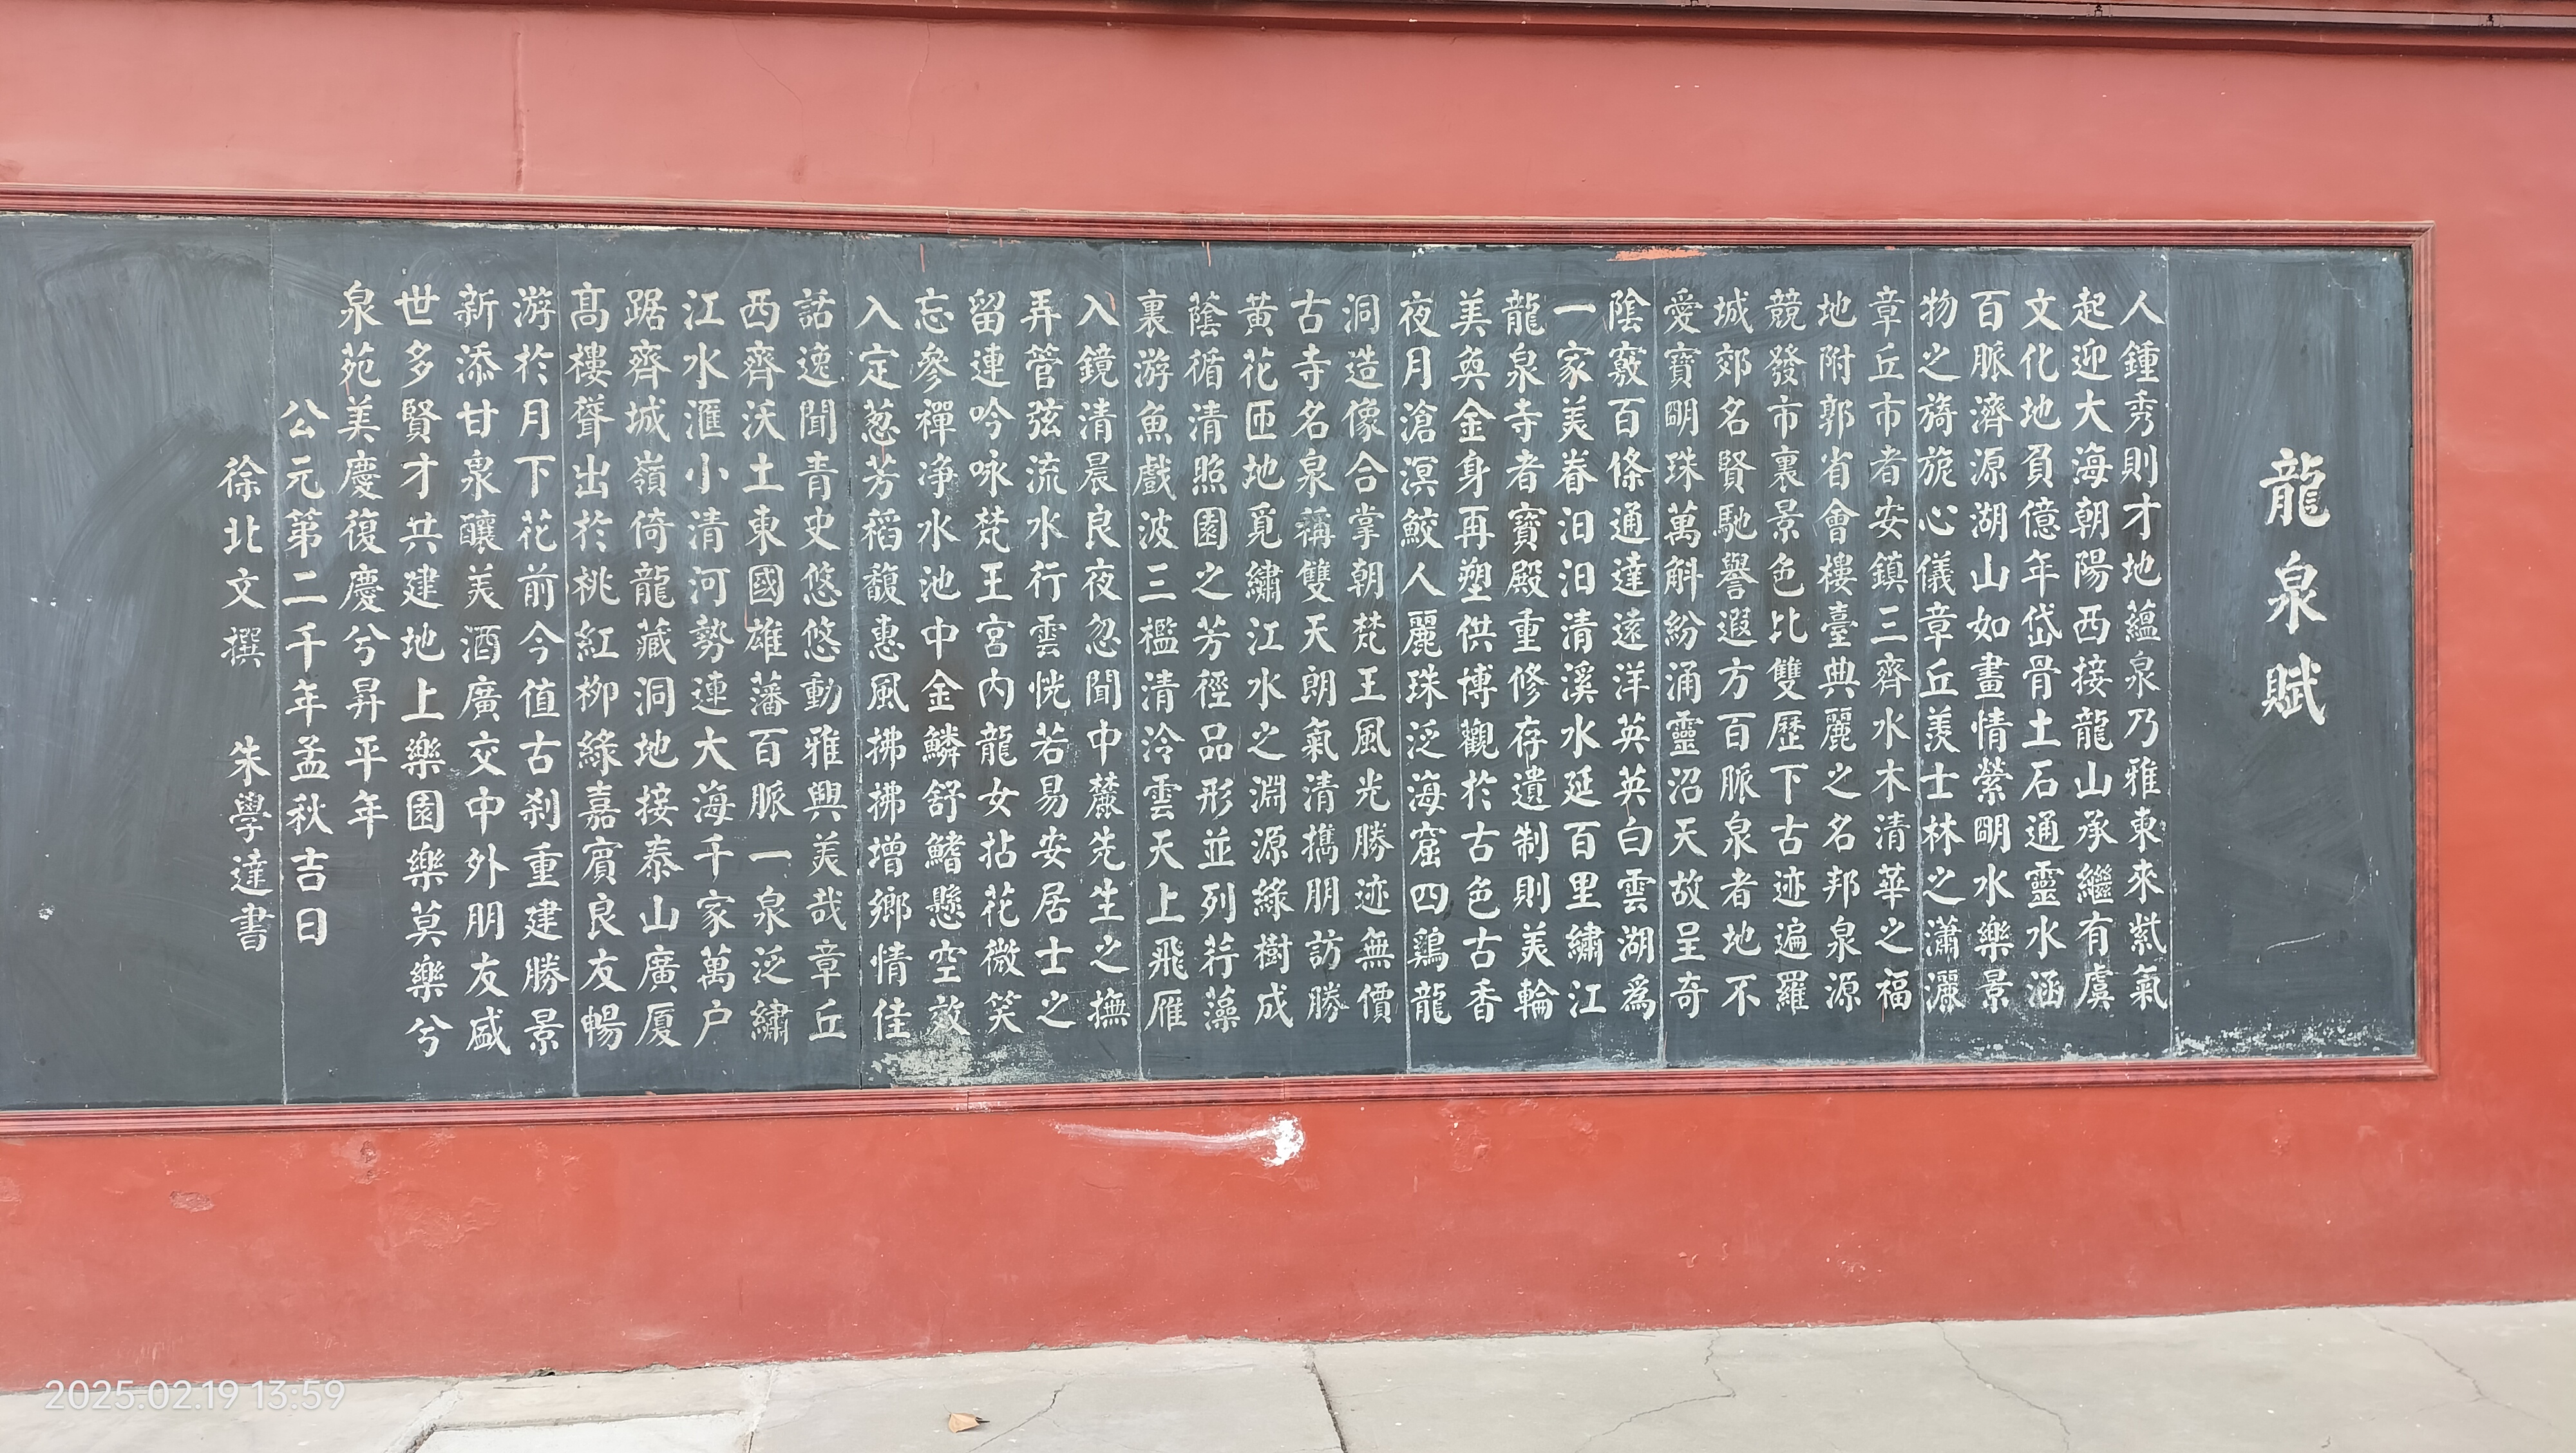 龍泉賦
人鍾秀則才地蘊泉乃雅東來紫氣
起迎大海朝陽西接龍山承繼有虞
文化地負億年岱骨土石通靈水涵
百脈濟源湖山如畫情縈明水樂景
物之旖旎心儀章丘羨士林之瀟灑
章丘市者安鎮三齊水木清華之福
地附郭省會樓臺典麗之名邦泉源
競發市裏景色比雙歷下古迹遍羅
城郊名賢馳譽遐方百脈泉者地不
愛寶明珠萬斛紛涌靈沼天故呈奇
陰竅百條通達遠洋英英白雲湖爲
一家美眷汩汩清溪水延百里繡江
龍泉寺者寶殿重修存遺制則美輪
美奐金身再塑供博觀於古色古香
夜月滄溟鮫人麗珠泛海窟四鷄龍
洞造像合掌朝梵王風光勝迹無價
古寺名泉稱雙天朗氣清攜朋訪勝
黃花匝地覓繡江水之淵源綠樹成
蔭循清照園之芳徑品形並列荇藻
裏游魚戲波三檻清泠雲天上飛雁
入鏡清晨良夜忽聞中麓先生之撫
弄管弦流水行雲恍若易安居士之
留連吟咏梵王宮內龍女拈花微笑
忘參禪净水池中金鱗舒鰭懸空效
入定葱芳稻馥惠風拂拂增鄉情佳
話逸聞青史悠悠動雅興美哉章丘
西齊沃土東國雄藩百脈一泉泛繡
江水滙小清河勢連大海千家萬户
踞齊城嶺倚龍藏洞地接泰山廣厦
高樓聳出於桃紅柳綠嘉賓良友暢
游於月下花前今值古刹重建勝景
新添甘泉釀美酒廣交中外朋友盛
世多賢才共建地上樂園樂莫樂兮
泉苑美慶復慶兮昇平年
公元第二千年孟秋吉日
徐北文撰 朱學達書
2025.02.19 13:59